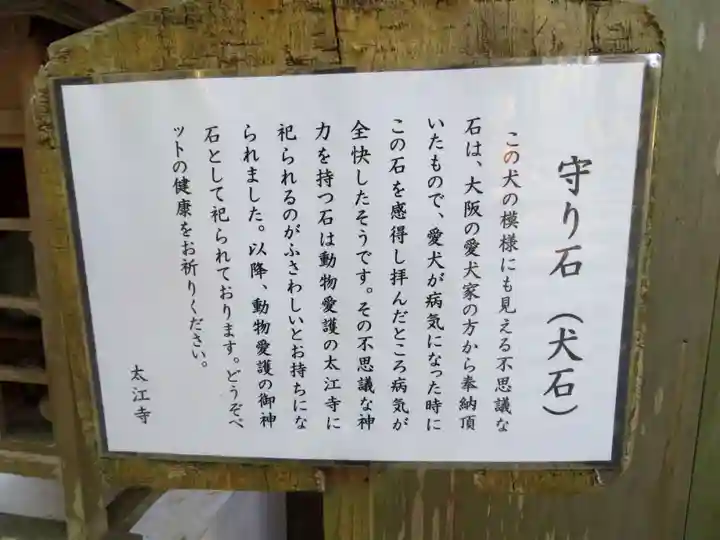 守り石（犬石）
この犬の模様にも見える不思議な
石は、大阪の愛犬家の方から奉納頂
いたもので、愛犬が病気になった時に
この石を感得し拝んだところ病気が
全快したそうです。その不思議な神
力を持つ石は動物愛護の太江寺に
祀られるのがふさわしいとお持ちにな
られました。以降、動物愛護の御神
石として祀られております。どうぞペ
ットの健康をお祈りください。
太江寺